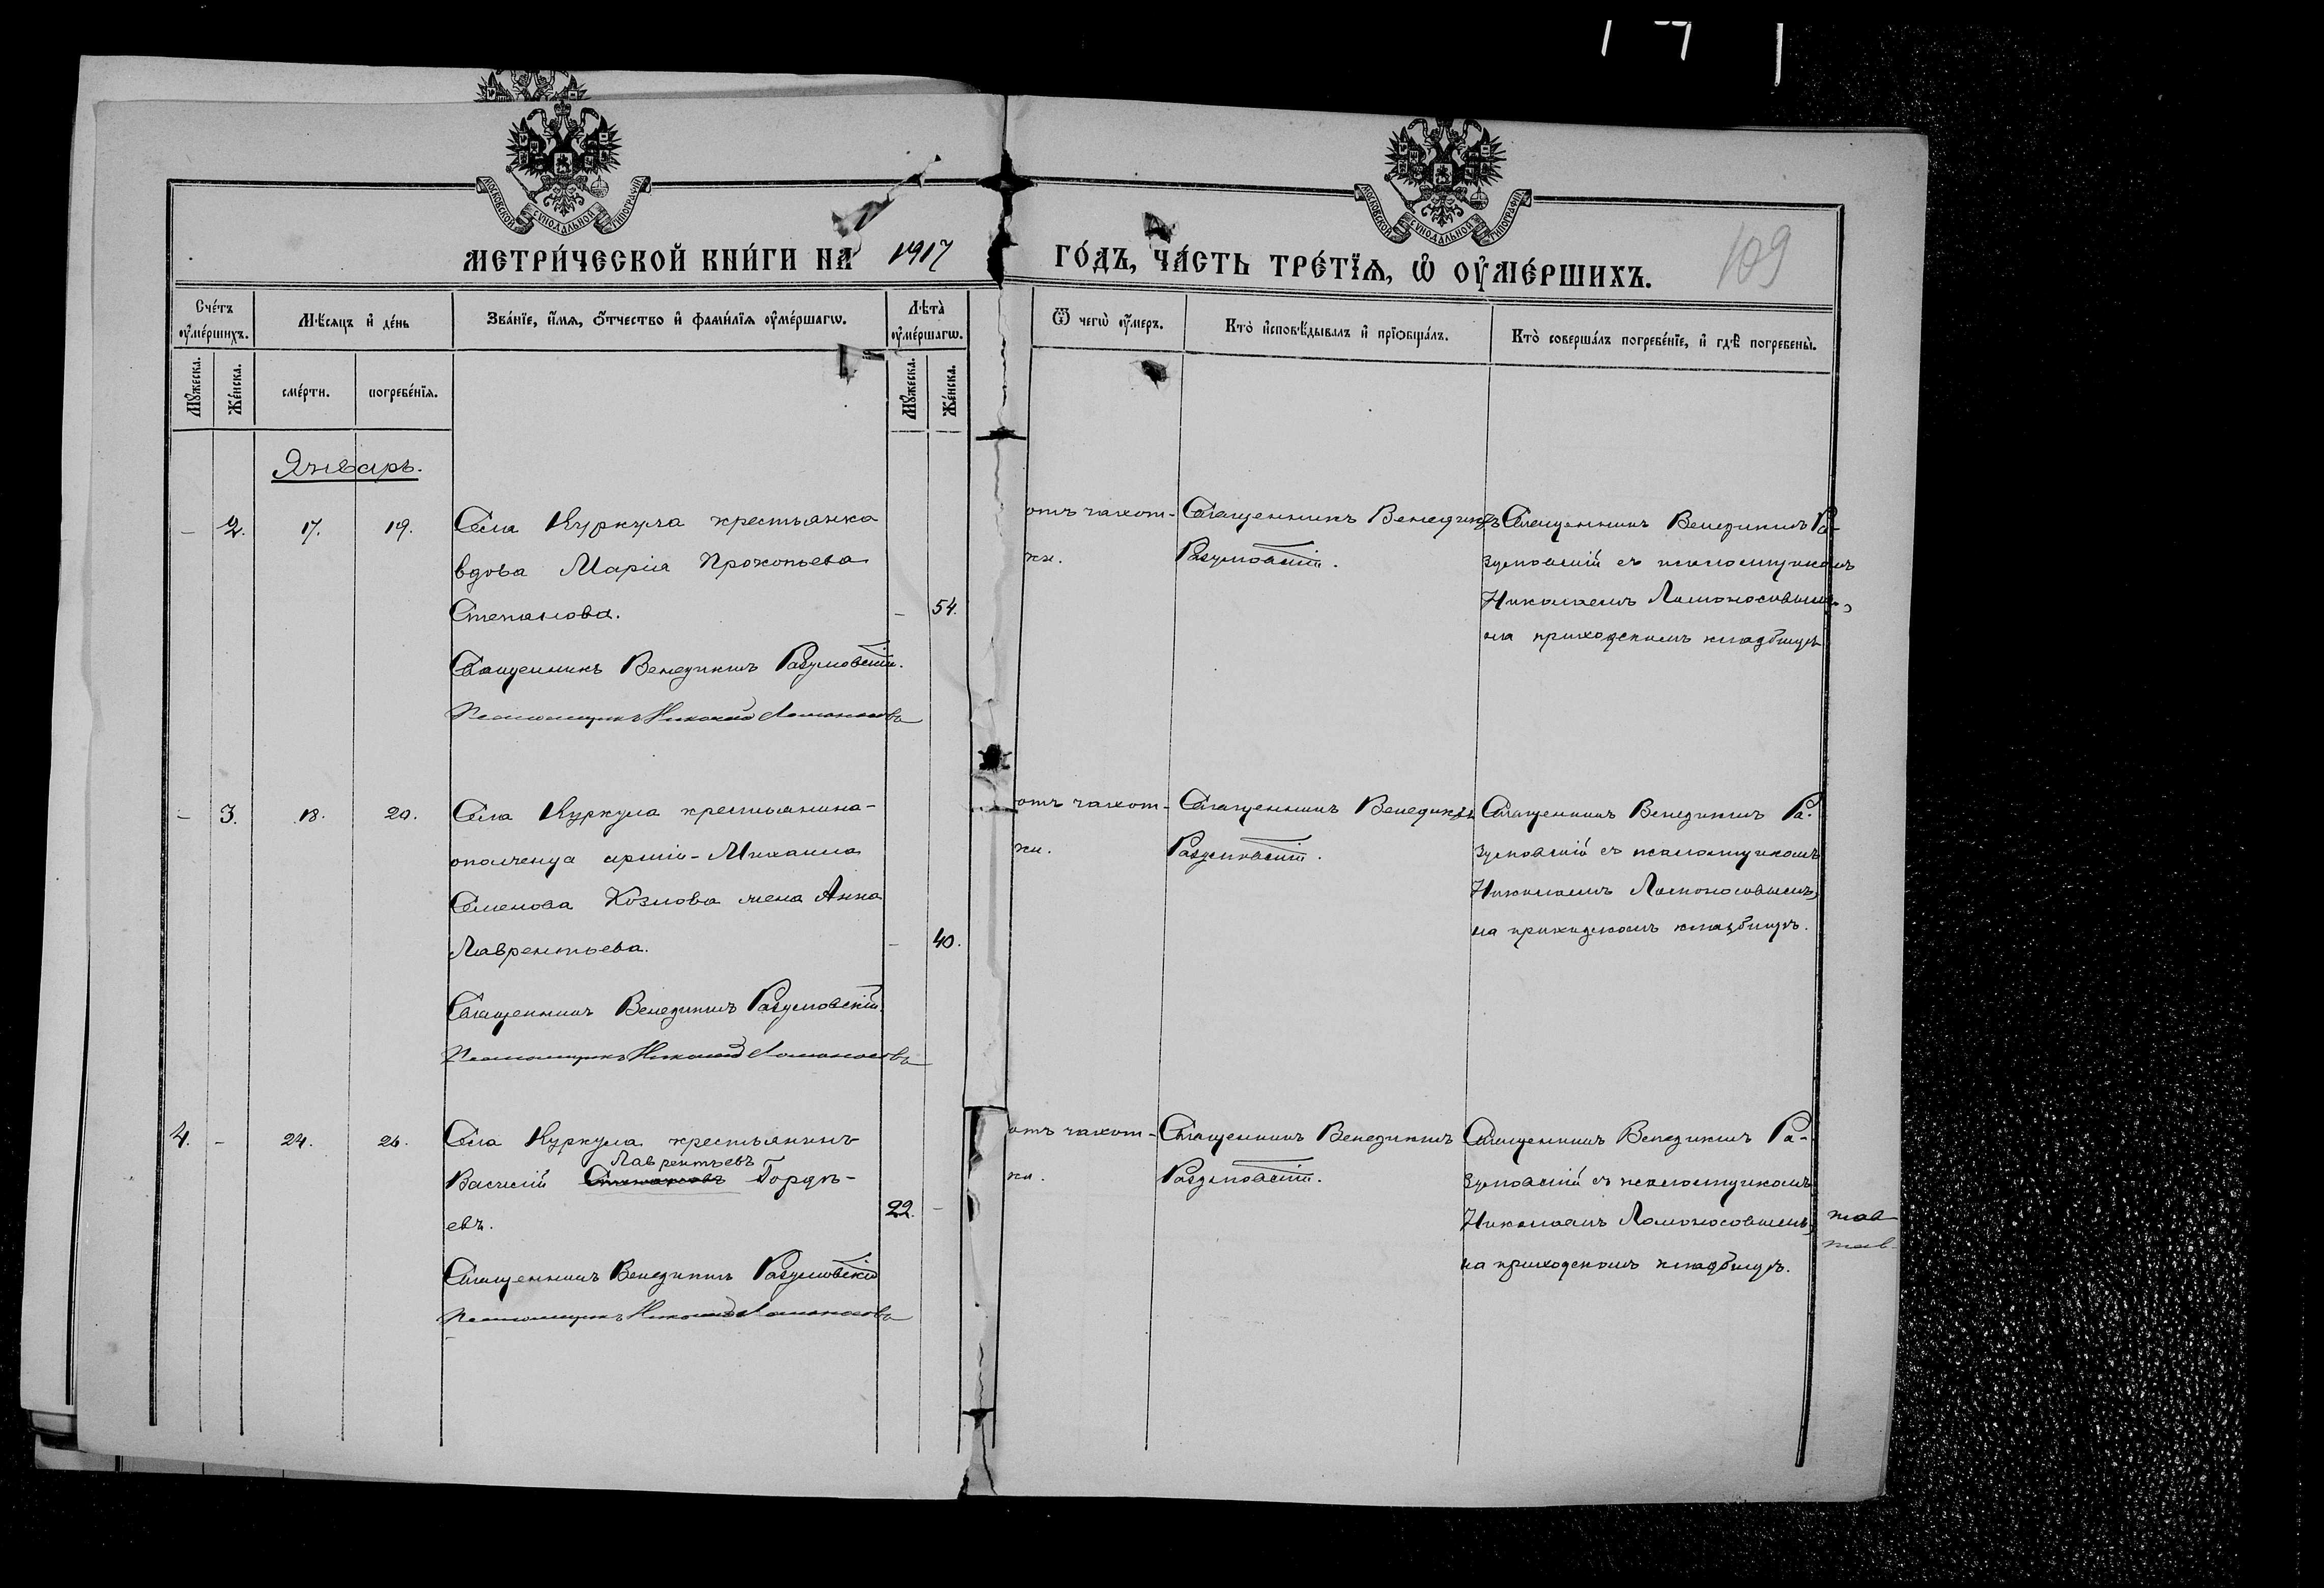 МОСКОВСКОЙ СѴНОДАЛЬНОЙ ТИПОГРАФІИ
МОСКОВСКОЙ СѴНОДАЛЬНОЙ ТИПОГРАФІИ
МЕТРИ́ЧЕСКОЙ КНИ́ГИ НА 1917 ГО́ДЪ, ЧА́СТЬ ТРЕ́ТЇѦ, Ѡ҆ ОУ҆МЕ́РШИХЪ.
109
Сче́тъ оу҆ме́ршихъ.
Мꙋ́жеска.
Же́нска.
Мѣ́сѧцъ и҆ де́нь
сме́рти.
погребе́нїѧ.
Зва́нїе, и҆́мѧ, ѻ҆́тчество и҆ фами́лїѧ оу҆ме́ршагѡ.
Лѣ́та оу҆ме́ршагѡ.
Мꙋ́жеска.
Же́нска.
Ѿ чегѡ̀ оу҆́меръ.
Кто̀ и҆сповѣ́дывалъ и҆ прїѡбща́лъ.
Кто̀ соверша́лъ погребе́нїе, и҆ гдѣ̀ погребены̀.
Январь.
- 2. 17. 19.
Села Куркула крестьянка
вдова Марія Прокопьева
Степанова. - 54.
Священникъ Венедиктъ Разумовскій.
Псаломщикъ Николай Ломоносовъ
отъ чахот-
ки.
Священникъ Венедиктъ
Разумовскій.
Священникъ Венедиктъ Ра-
зумовскій съ псаломщикомъ
Николаемъ Ломоносовымъ,
на приходскомъ кладбищѣ
- 3. 18. 20.
Села Куркула крестьянина-
ополченца арміи - Михаила
Семенова Козлова жена Анна
Лаврентьева. - 40.
Священникъ Венедиктъ Разумовскій.
Псаломщикъ Николай Ломоносовъ
отъ чахот-
ки.
Священникъ Венедиктъ
Разумовскій.
Священникъ Венедиктъ Ра-
зумовскій съ псаломщикомъ
Николаемъ Ломоносовымъ,
на приходскомъ кладбищѣ.
4. - 24. 26.
Села Куркула крестьянинъ
Лаврентьевъ
Василій Степановъ Гордѣ-
евъ. 22. -
Священникъ Венедиктъ Разумовскій
Псаломщикъ Николай Ломоносовъ
отъ чахот-
ки.
Священникъ Венедиктъ
Разумовскій.
Священникъ Венедиктъ Ра-
зумовскій съ псаломщикомъ
Николаемъ Ломоносовымъ,
на приходскомъ кладбищѣ.